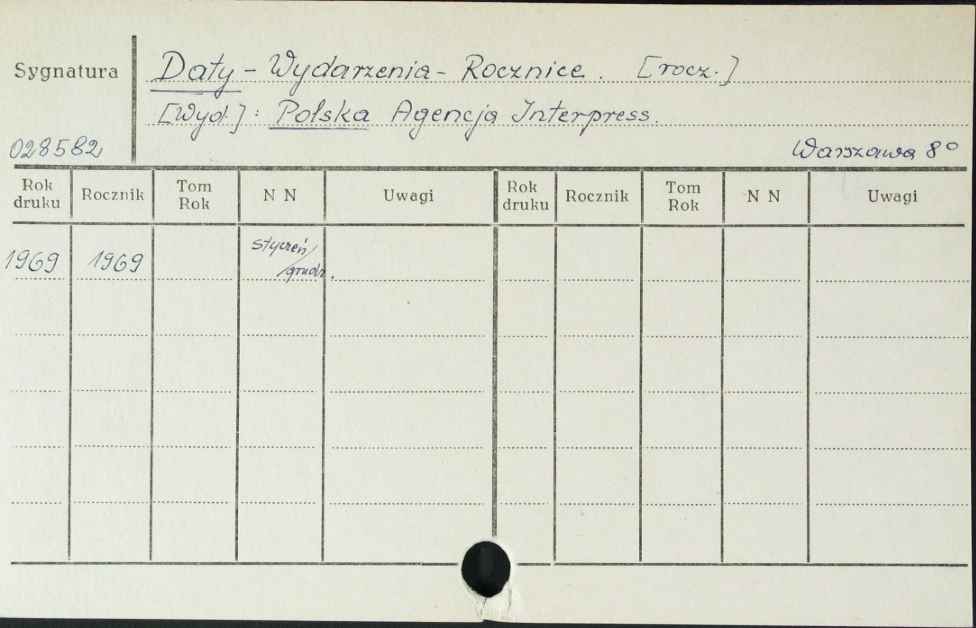 Sygnatura
Daty - Wydarzenia - Rocznice. [rocz.]
[Wyd.]: Polska Agencja Interpress.
028582
Warszawa 8°
Rok druku Rocznik Tom Rok N N Uwagi Rok druku Rocznik Tom Rok N N Uwagi
1969 1969 styczeń/
grudz.